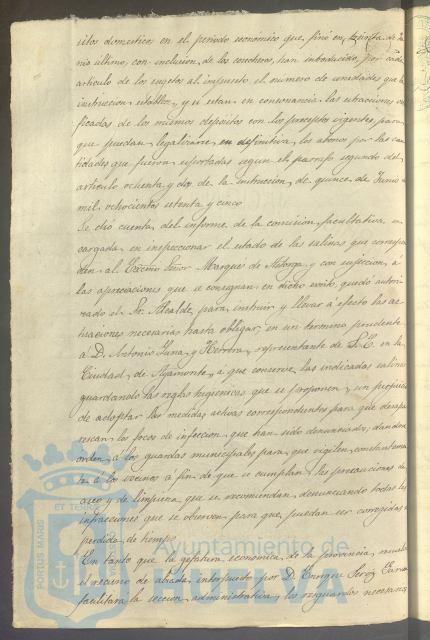 sitos domesticos en el periodo economico que finó en treinta de Ju-
nio último, con inclusion de los cosecheros, han introducido, por cada
articulo de los sugetos al impuesto el numero de unidades que la
instruccion establece, y si estan en consonancia las estracciones ve-
rificadas de los mismos depositos con los preceptos vigentes, para
que puedan legalizarse en definitiva, los abonos por las can-
tidades que fueron esportadas segun el parrafo segundo del
articulo ochenta y dos de la instruccion de quince de Junio
mil ochocientos setenta y cinco
Se dio cuenta del informe de la comision facultativa en-
cargada en inspeccionar el estado de las salinas que correspon-
den al Excmo Señor Marqués de Astorga, y con sujeccion á
las apreciaciones que se consignan en dicho escrito, quedó autori-
zado el Sr. Alcalde, para instruir y llevar á efecto las ac-
tuaciones necesarias hasta obligar, en un termino prudente
á D. Antonio y Herrera, representante de S. E. en la
Ciudad de Ayamonte, á que conserve las indicadas salinas
guardando las reglas higienicas que se proponen, sin perjuicio
de adoptar las medidas activas correspondientes para que desapa-
rezcan los focos de infeccion que han sido denunciados, dandose
orden á los guardas municipales para que vigilen constantemen-
te á los vecinos á fin de que se cumplan las precauciones de
aseo y de limpieza que se recomiendan, denunciando todas las
infracciones que se observen para que puedan ser corregidas sin
perdida de tiempo
En tanto que la gefatura economica de la provincia, resuelve
el recurso de alzada interpuesto por D. Enrique
facilitará la seccion administrativa, los resguardos necesarios
PORTUS MARIS
ET TERRAE
Ayuntamiento de
HUELVA